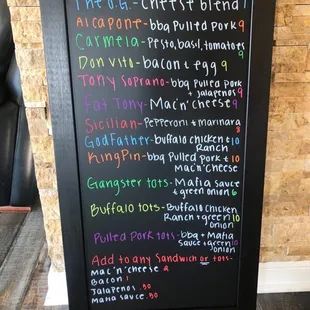 The O.G.- Cheese blend 7
Al Capone- bbq Pulled pork 9
Carmela- Pesto, basil, tomatoes 9
Don vito- bacon + egg 9
Tony Soprano- bbq Pulled pork
+ jalapeños 9
Fat Tony- Mac'n'cheese 9
Sicilian- Pepperoni + marinara
8
GodFather- buffalo chicken + 10
Ranch
KingPin- bbq Pulled pork + 10
Mac'n'cheese
Gangster tots- Mafia sauce
+ green onion 6
Buffalo tots- Buffalo chicken
Ranch + green 10
onion
Pulled Pork tots- bbq + Mafia
sauce + green 10
onion
Add to any Sandwich or tots-
Mac'n'cheese 2
Bacon 1
Jalapenos .50
Mafia sauce .50